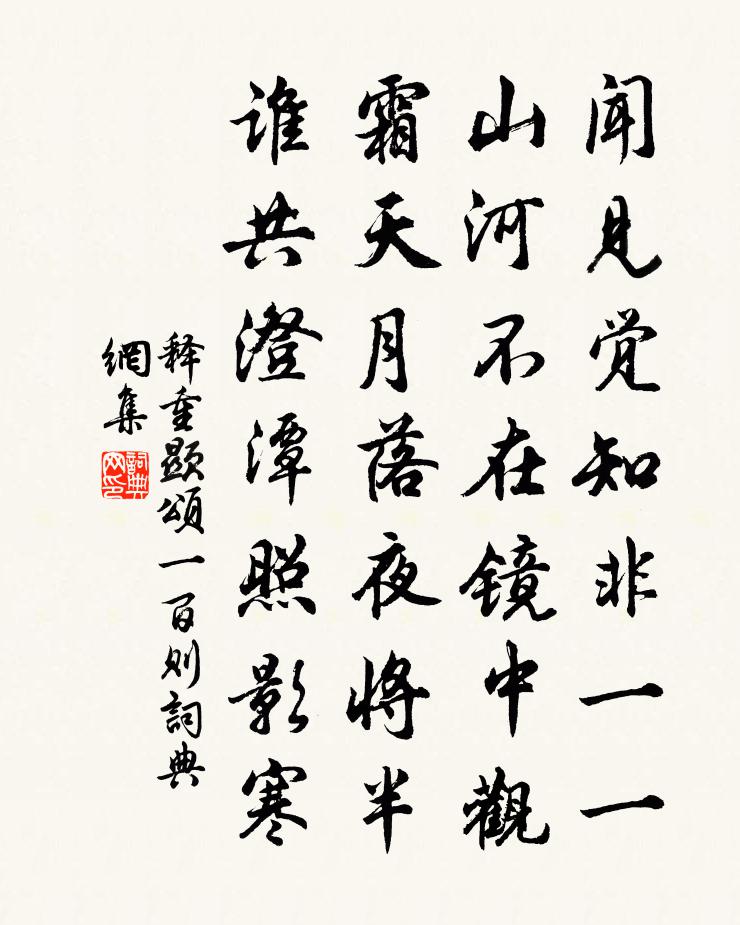 闻見觉知非一一
山河不在镜中觀
霜天月落夜将半
谁共澄潭照影寒
释重顯頌一百则詞典
網集
詞典
网印